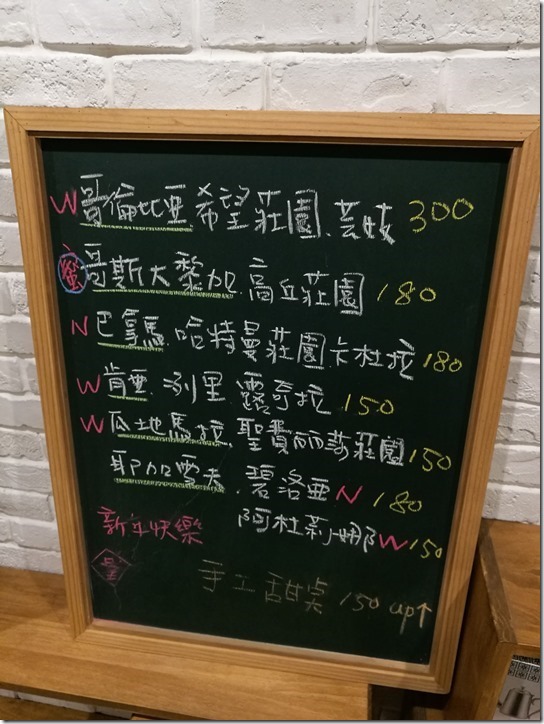 W 哥倫比亞.希望莊園.芸妓 300
蜜 哥斯大黎加.高丘莊園 180
N 巴拿馬.哈特曼莊園.卡杜拉 180
W 肯亞.洌里.露奇拉 150
W 瓜地馬拉.聖費麗莎莊園 150
耶加雪夫.碧洛亞 N 180
阿杜莉娜 W 150
新年快樂
手工甜點 150 up↑